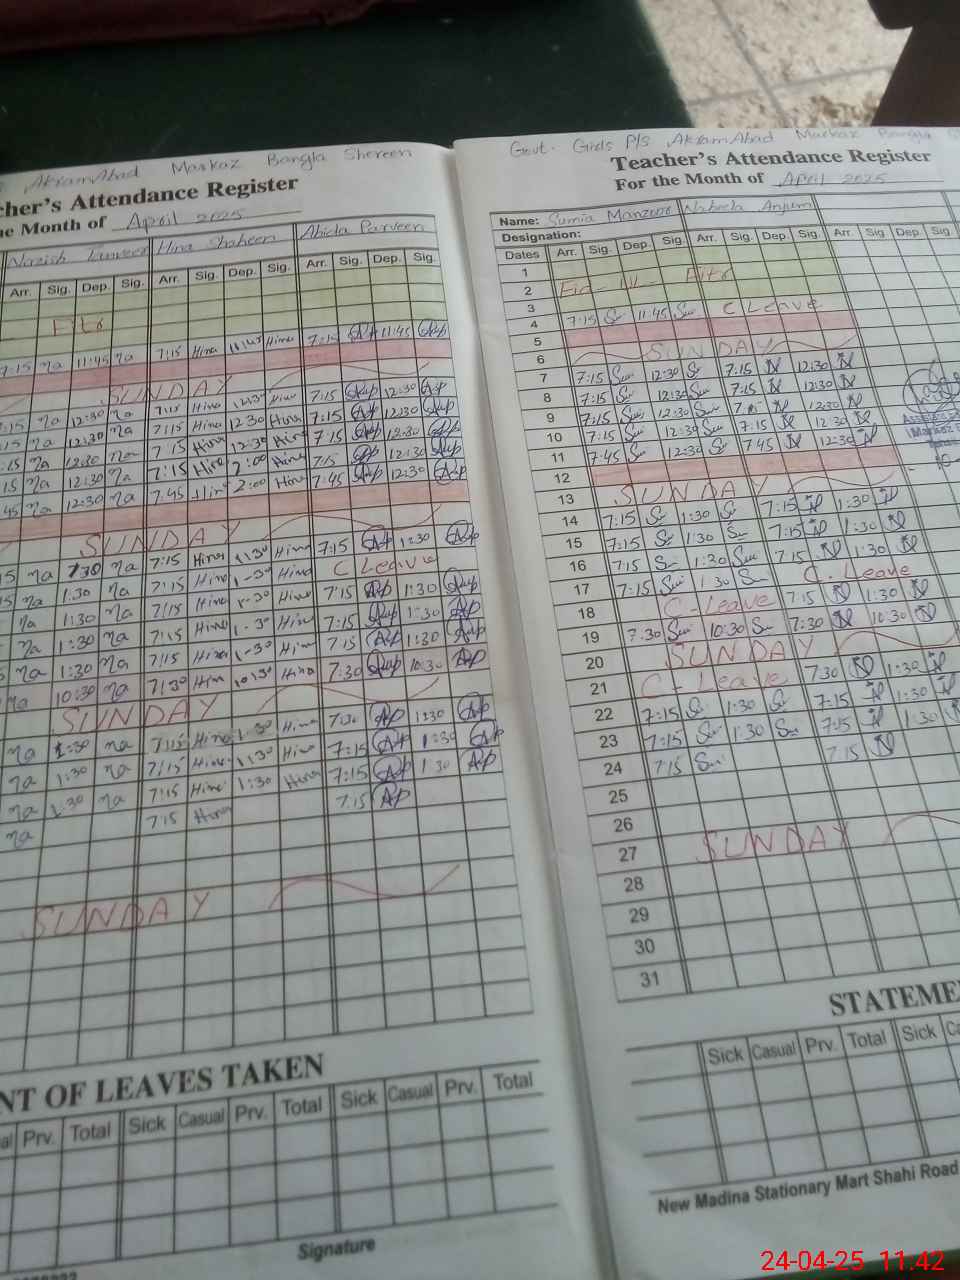 AkramAbad Markaz Bangla Shereen
cher's Attendance Register
he Month of April 2025
Hina Shaheen Abida Parveen
Arr. Sig. Dep. Sig. Arr. Sig. Dep. Sig. Arr. Sig. Dep. Sig.
Fitr
7:15 Na 11:45 Na 7:15 Hina 11:45 Hina 7:15 11:45
SUNDAY
:15 Na 12:30 Na 7:15 Hina 12:30 Hina 7:15 12:30
:15 Na 12:30 Na 7:15 Hina 12:30 Hina 7:15 12:30
:15 Na 12:30 Na 7:15 Hina 12:30 Hina 7:15 12:30
15 Na 12:30 Na 7:15 Hina 2:00 Hina 7:15 12:30
45 Na 12:30 Na 7:45 Hina 2:00 Hina 7:45 12:30
SUNDAY
15 Na 1:30 Na 7:15 Hina 1:30 Hina 7:15 Ap 1:30 Ap
Na 1:30 Na 7:15 Hina 1:30 Hina C Leave
Na 1:30 Na 7:15 Hina 1:30 Hina 7:15 Ap 1:30 Ap
Na 1:30 Na 7:15 Hina 1:30 Hina 7:15 Ap 1:30 Ap
Na 1:30 Na 7:15 Hina 1:30 Hina 7:15 Ap 1:30 Ap
Na 10:30 Na 7:30 Hina 10:30 Hina 7:30 Ap 10:30 Ap
SUNDAY
Na 1:30 Na 7:15 Hina 1:30 Hina 7:30 Ap 1:30 Ap
Na 1:30 Na 7:15 Hina 1:30 Hina 7:15 Ap 1:30 Ap
Na 1:30 Na 7:15 Hina 1:30 Hina 7:15 Ap 1:30 Ap
Na 7:15 Hina 7:15 Ap
SUNDAY
NT OF LEAVES TAKEN
al Prv. Total Sick Casual Prv. Total Sick Casual Prv. Total
Signature
Govt. Girls P/S AkramAbad Markaz Bangla
Teacher's Attendance Register
For the Month of April 2025
Name: Sumia Manzoor Nabeela Anjum
Designation:
Dates Arr. Sig. Dep. Sig. Arr. Sig. Dep. Sig. Arr. Sig Dep. Sig.
1
2 Eid-ul-Fitr
3
4 7:15 Su 11:45 Su C Leave
5
6 SUNDAY
7 7:15 Su 12:30 Su 7:15 N 12:30 N
8 7:15 Su 12:30 Su 7:15 N 12:30 N
9 7:15 Su 12:30 Su 7:15 N 12:30 N
10 7:15 Su 12:30 Su 7:15 N 12:30 N
11 7:45 Su 12:30 Su 7:45 N 12:30 N
12
13 SUNDAY
14 7:15 Su 1:30 Su 7:15 N 1:30 N
15 7:15 Su 1:30 Su 7:15 N 1:30 N
16 7:15 Su 1:30 Su 7:15 N 1:30 N
17 7:15 Su 1:30 Su C. Leave
18 C-Leave 7:15 N 1:30 N
19 7:30 Su 10:30 Su 7:30 N 10:30 N
20 SUNDAY
21 C-Leave 7:30 N 1:30 N
22 7:15 Su 1:30 Su 7:15 N 1:30 N
23 7:15 Su 1:30 Su 7:15 N 1:30 N
24 7:15 Su 7:15 N
25
26
27 SUNDAY
28
29
30
31
STATEME
Sick Casual Prv. Total Sick Ca
New Madina Stationary Mart Shahi Road
24-04-25 11.42